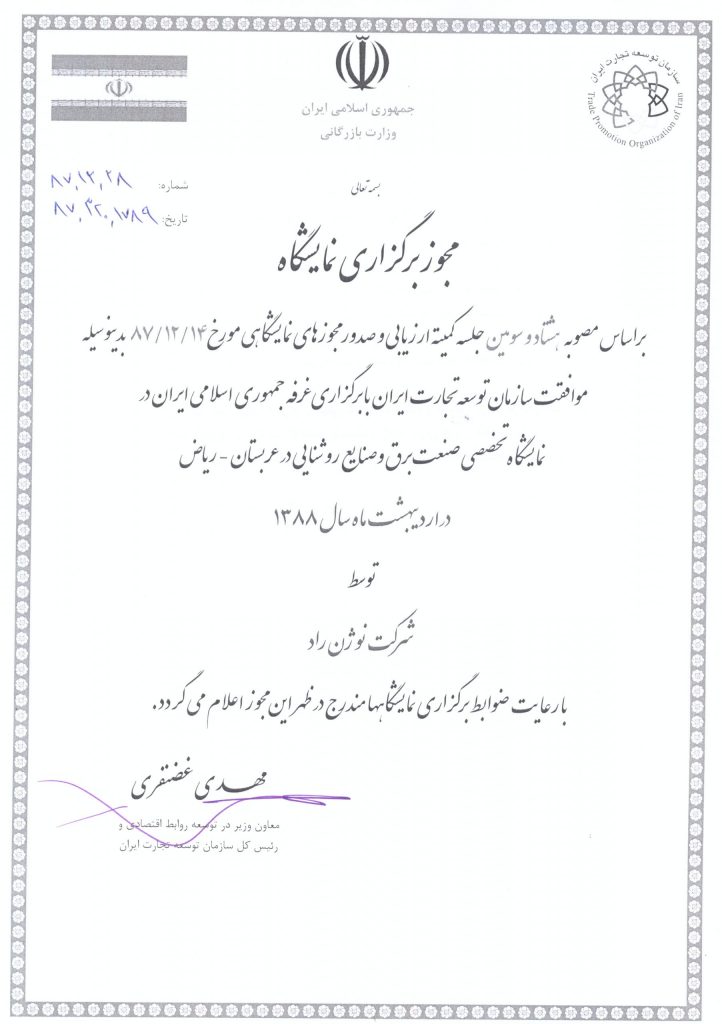 سازمان توسعه تجارت ایران
Trade Promotion Organization of Iran
جمهوری اسلامی ایران
وزارت بازرگانی
شماره: ۸۷,۱۲,۲۸
تاریخ: ۸۷,۳۲۰,۱۷۸۹
بسمه تعالی
مجوز برگزاری نمایشگاه
براساس مصوبه هشتاد و سومین جلسه کمیته ارزیابی و صدور مجوز های نمایشگاهی مورخ ۸۷/۱۲/۱۴ بدینوسیله
موافقت سازمان توسعه تجارت ایران با برگزاری غرفه جمهوری اسلامی ایران در
نمایشگاه تخصصی صنعت برق و صنایع روشنایی در عربستان - ریاض
در اردیبهشت ماه سال ۱۳۸۸
توسط
شرکت نوژن راد
با رعایت ضوابط برگزاری نمایشگاهها مندرج در ظهر این مجوز اعلام می گردد.
مهدی غضنفری
معاون وزیر در توسعه روابط اقتصادی و
رئیس کل سازمان توسعه تجارت ایران